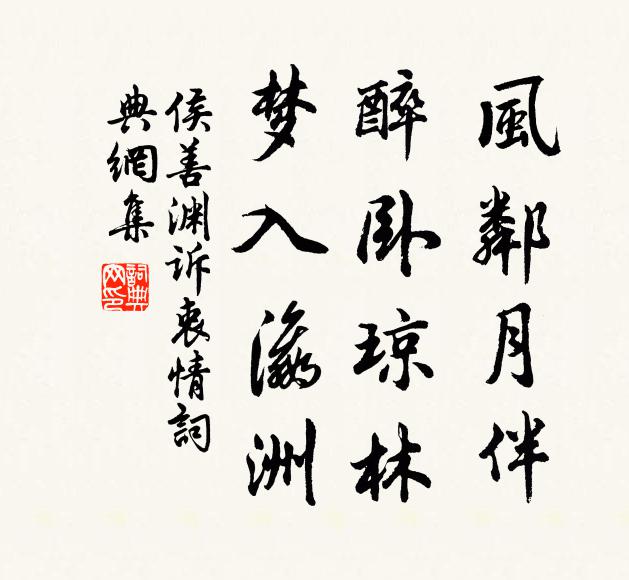 風鄰月伴
醉卧琼林
梦入瀛洲
侯善渊诉衷情詞
典網集
詞典网印